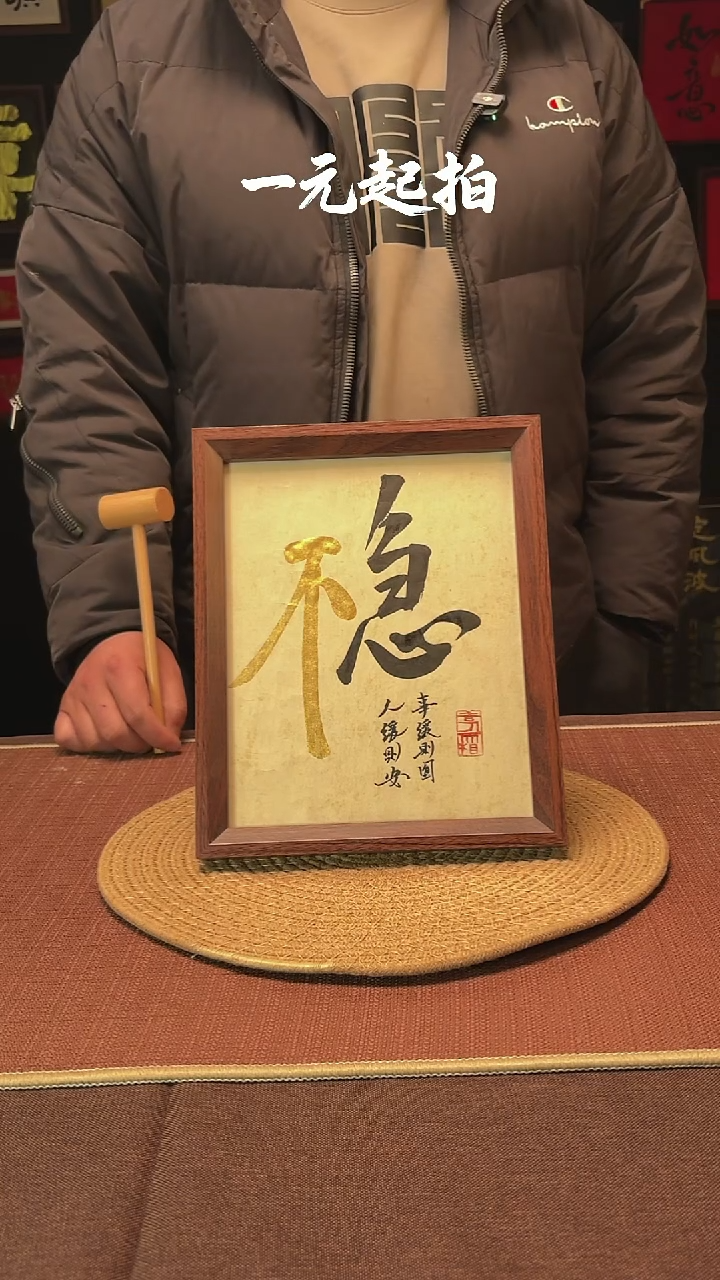 一元起拍
Champion
稳
事缓则圆
人缓则安
定风波